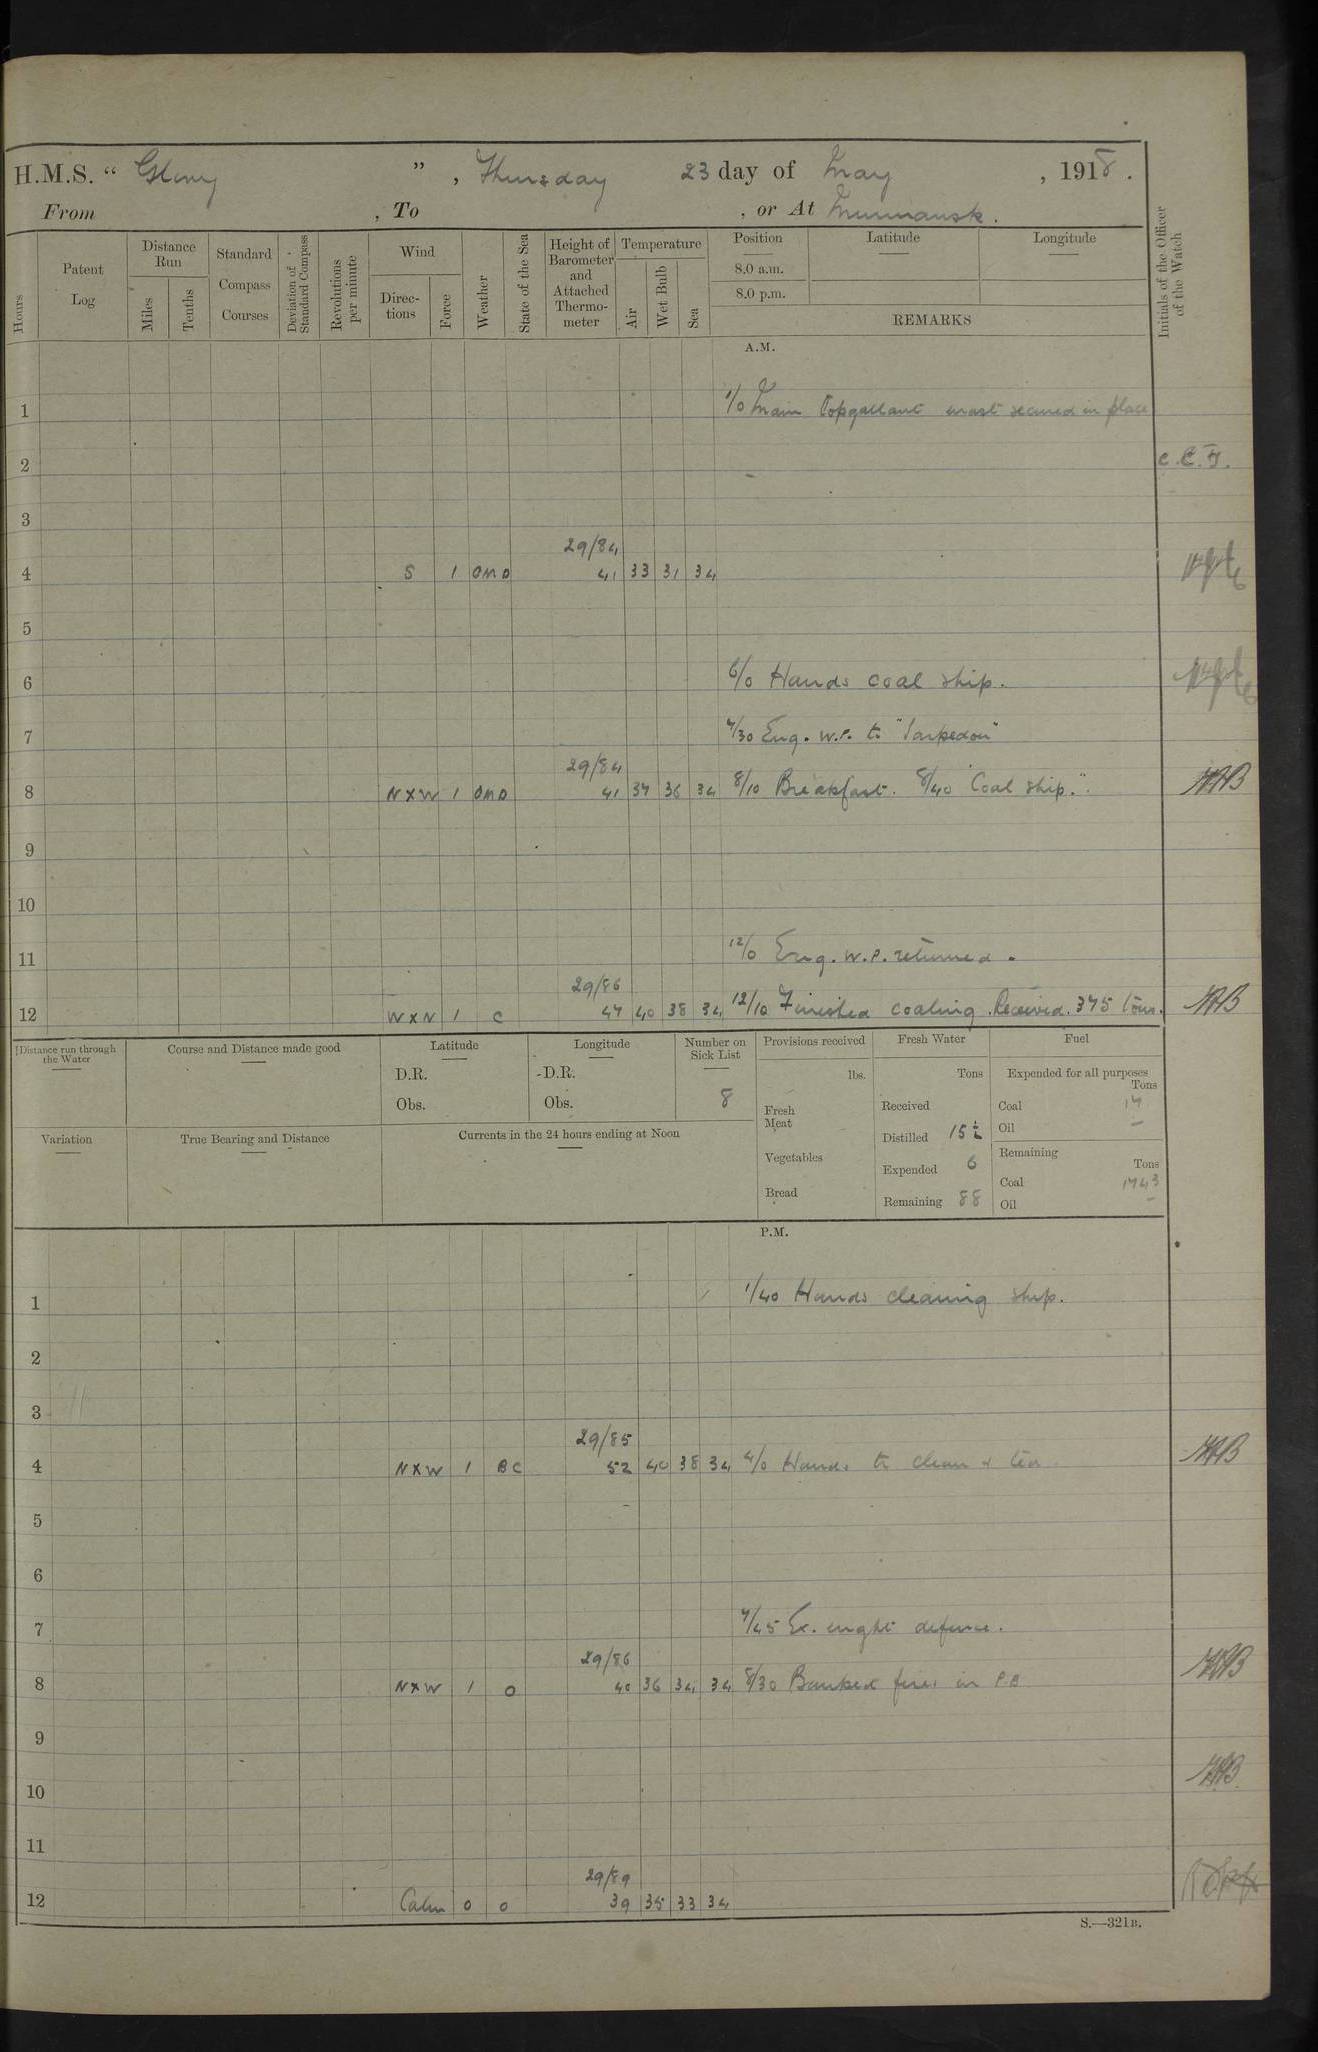 H.M.S. “ Glory ” , Thursday 23 day of May , 1918 .
From , To , or At Murmansk .
Hours
Patent Log
Distance Run
Miles
Tenths
Standard Compass Courses
Deviation of Standard Compass
Revolutions per minute
Wind
Directions
Force
Weather
State of the Sea
Height of Barometer and Attached Thermometer
Temperature
Air
Wet Bulb
Sea
Position
8.0 a.m.
8.0 p.m.
Latitude
Longitude
REMARKS
Initials of the Officer of the Watch
A.M.
1 1/0 Main Topgallant mast secured in place
2
3
29/84
4 S 1 OMD 41 33 31 34
5
6 6/0 Hands coal ship.
7 7/30 Eng. W.P. to
29/84
8 N X W 1 OMD 41 37 36 34 8/10 Breakfast. 8/40 "Coal ship."
9
10
11 12/0 Eng. W.P. returned.
29/86
12 W X N 1 C 47 40 38 34 12/10 Finished coaling. Received. 375 tons.
Distance run through the Water
Course and Distance made good
Latitude
D.R.
Obs.
Longitude
D.R.
Obs.
Number on Sick List
8
Provisions received
lbs.
Fresh Meat
Vegetables
Bread
Fresh Water
Tons
Received
Distilled 15 ½
Expended 6
Remaining 88
Fuel
Expended for all purposes
Tons
Coal 17
Oil –
Remaining
Tons
Coal 1743
Oil –
Variation
True Bearing and Distance
Currents in the 24 hours ending at Noon
P.M.
1 1/40 Hands cleaning ship.
2
3
29/85
4 N X W 1 BC 52 40 38 34 4/0 Hands to clean & tea
5
6
7 7/45 Ex. night defence.
29/86
8 N X W 1 O 40 36 34 34 8/30 Banked fires in P.B
9
10
11
29/89
12 Calm 0 0 39 35 33 34
S.—321B.